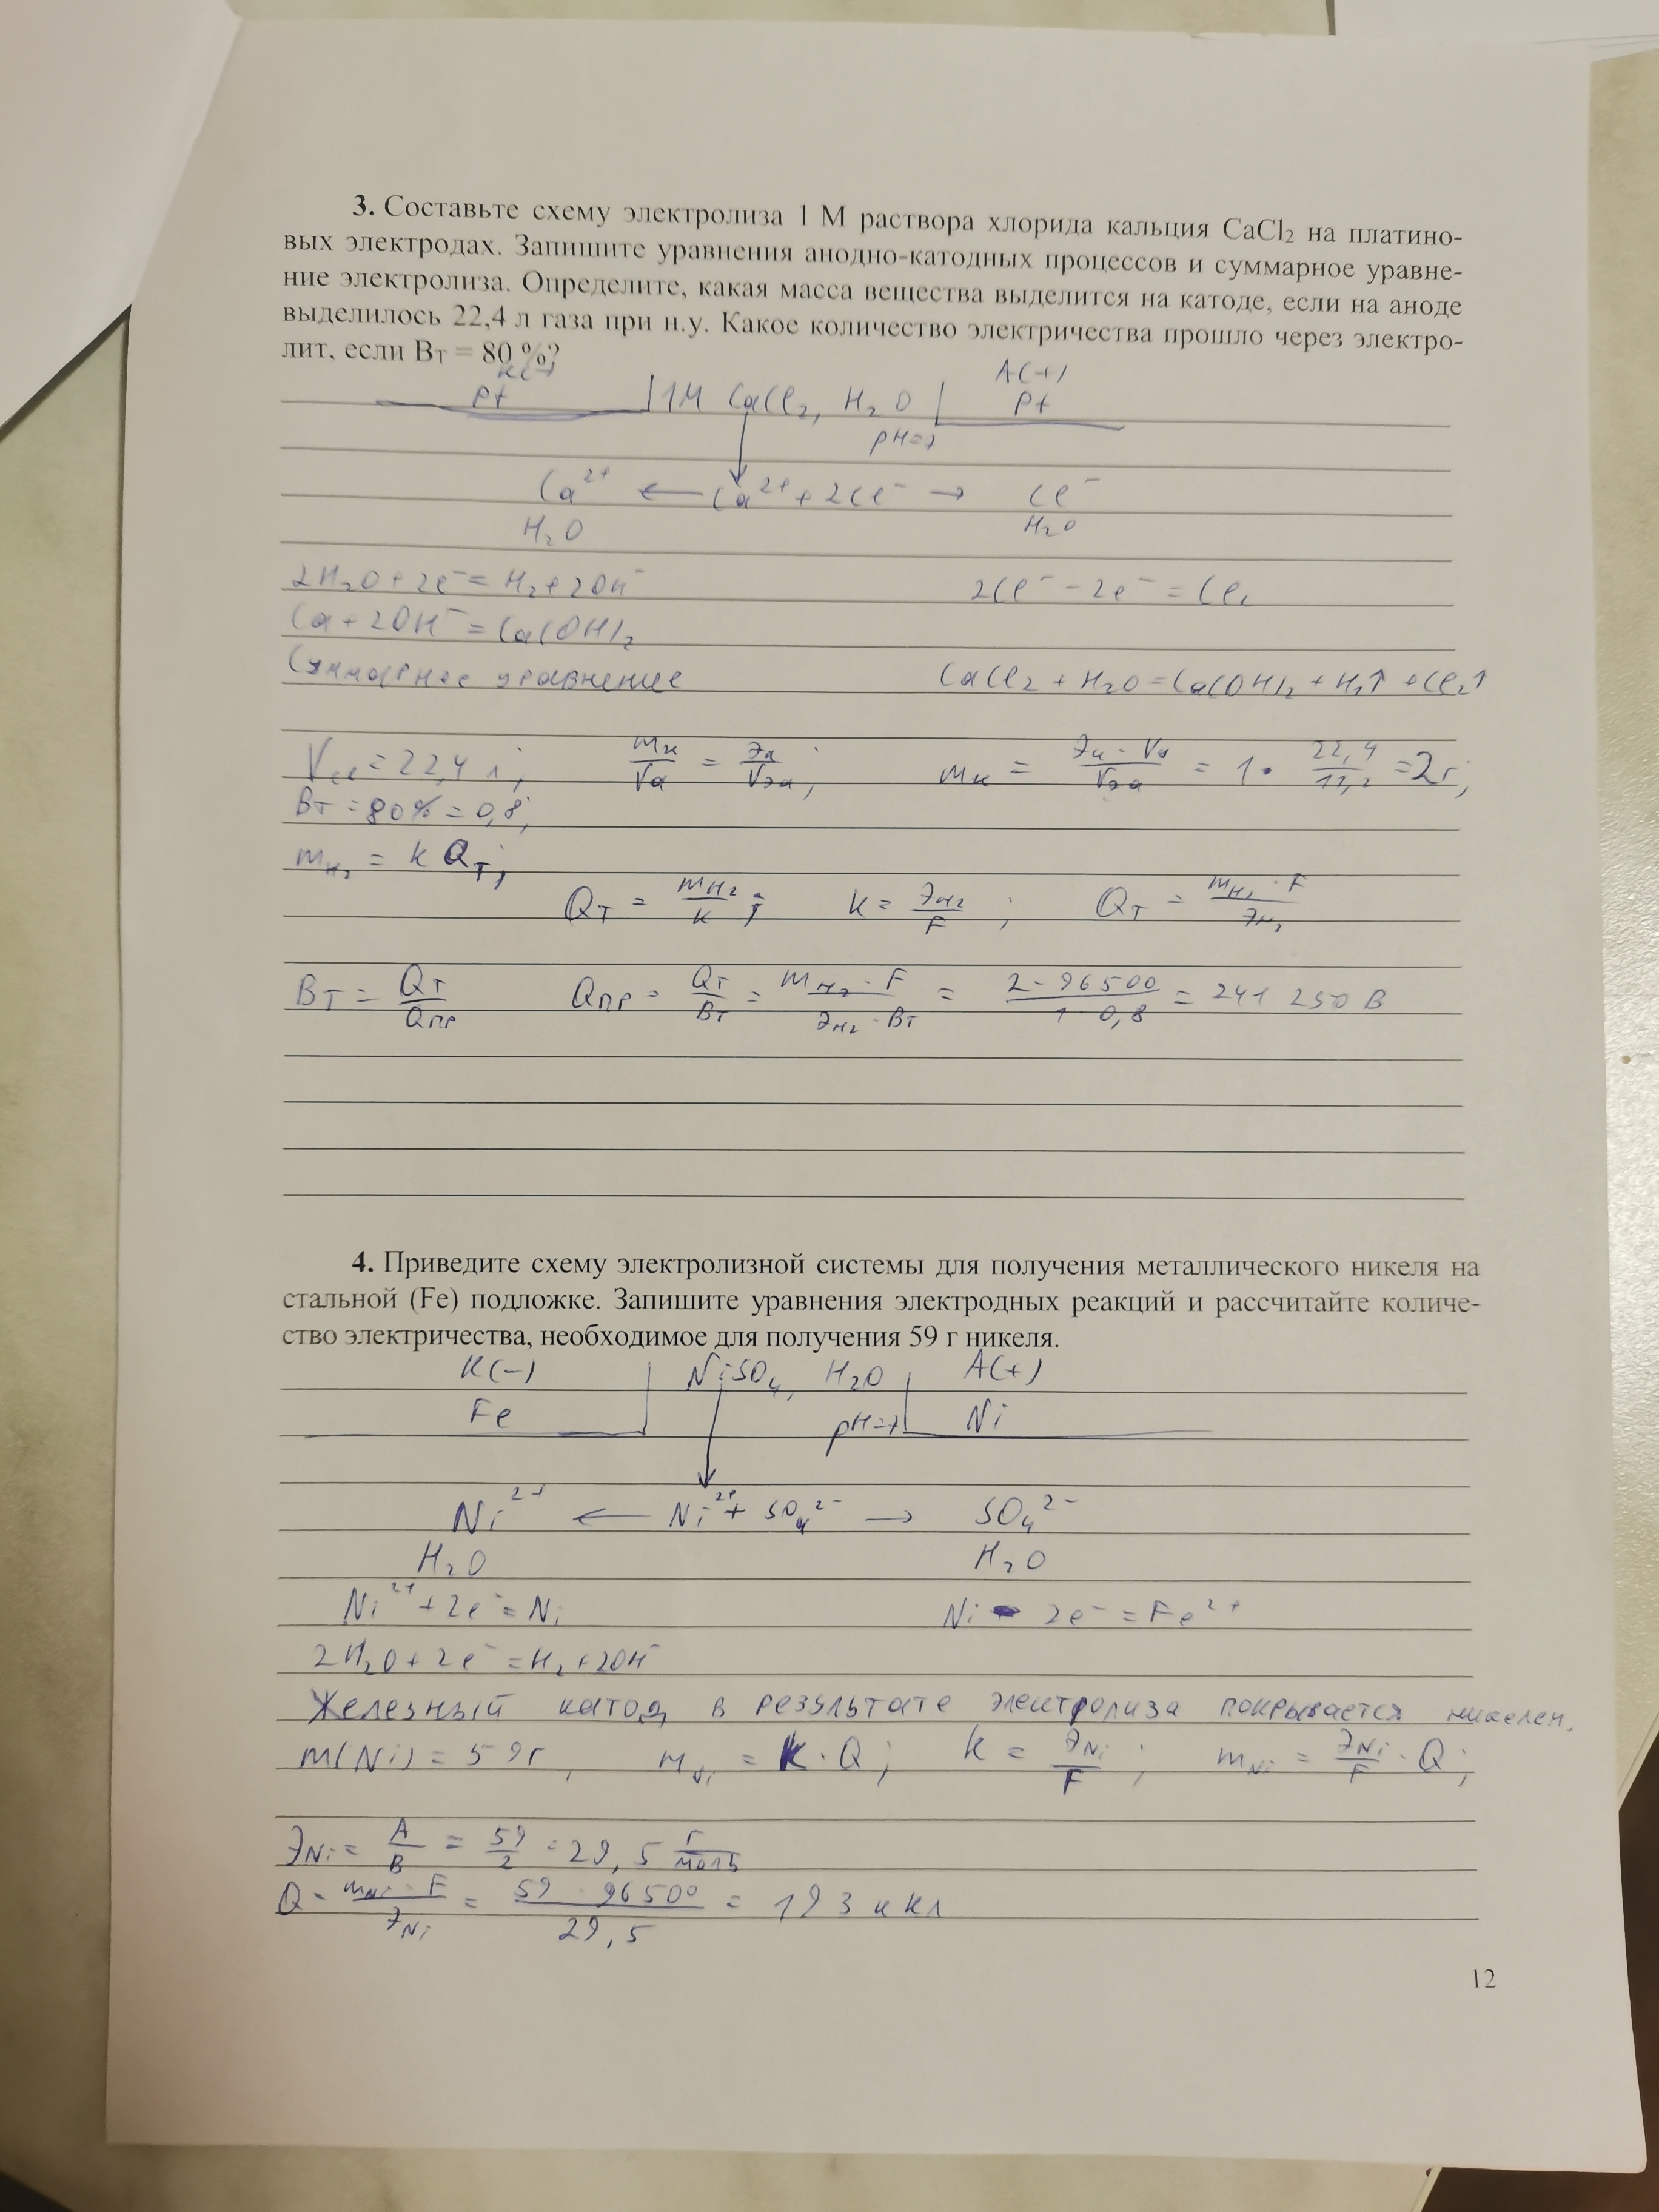 3. Составьте схему электролиза 1 М раствора хлорида кальция CaCl₂ на платино-
вых электродах. Запишите уравнения анодно-катодных процессов и суммарное уравне-
ние электролиза. Определите, какая масса вещества выделится на катоде, если на аноде
выделилось 22,4 л газа при н.у. Какое количество электричества прошло через электро-
лит, если Вт = 80 %?
K(-) A(+)
Pt | 1M CaCl₂, H₂O | Pt
pH=7
Ca²⁺ ← Ca²⁺ + 2Cl⁻ → Cl⁻
H₂O H₂O
2H₂O + 2e⁻ = H₂ + 2OH⁻ 2Cl⁻ - 2e⁻ = Cl₂
Ca + 2OH⁻ = Ca(OH)₂
Суммарное уравнение CaCl₂ + H₂O = Ca(OH)₂ + H₂↑ + Cl₂↑
V = 22,4 л; mк/Vа = Эк/Vэа; mк = Эк · Vа/Vэа = 1 · 22,4/11,2 = 2г;
Вт = 80% = 0,8;
mH₂ = k Qт;
Qт = mH₂/k; k = ЭH₂/F; Qт = mH₂ · F/ЭH₂
Вт = Qт/Qпр Qпр = Qт/Вт = mH₂ · F/ЭH₂ · Вт = 2 · 96500/1 · 0,8 = 241 250 В
4. Приведите схему электролизной системы для получения металлического никеля на
стальной (Fe) подложке. Запишите уравнения электродных реакций и рассчитайте количе-
ство электричества, необходимое для получения 59 г никеля.
K(-) | NiSO₄, H₂O | A(+)
Fe pH=7 Ni
Ni²⁺ ← Ni²⁺ + SO₄²⁻ → SO₄²⁻
H₂O H₂O
Ni²⁺ + 2e⁻ = Ni Ni - 2e⁻ = Fe²⁺
2H₂O + 2e⁻ = H₂ + 2OH⁻
Железный катод в результате электролиза покрывается никелем.
m(Ni) = 59г, mNi = k · Q; k = ЭNi/F; mNi = ЭNi/F · Q;
ЭNi = A/B = 59/2 = 29,5 г/моль
Q = mNi · F/ЭNi = 59 · 96500/29,5 = 193 к Кл
12